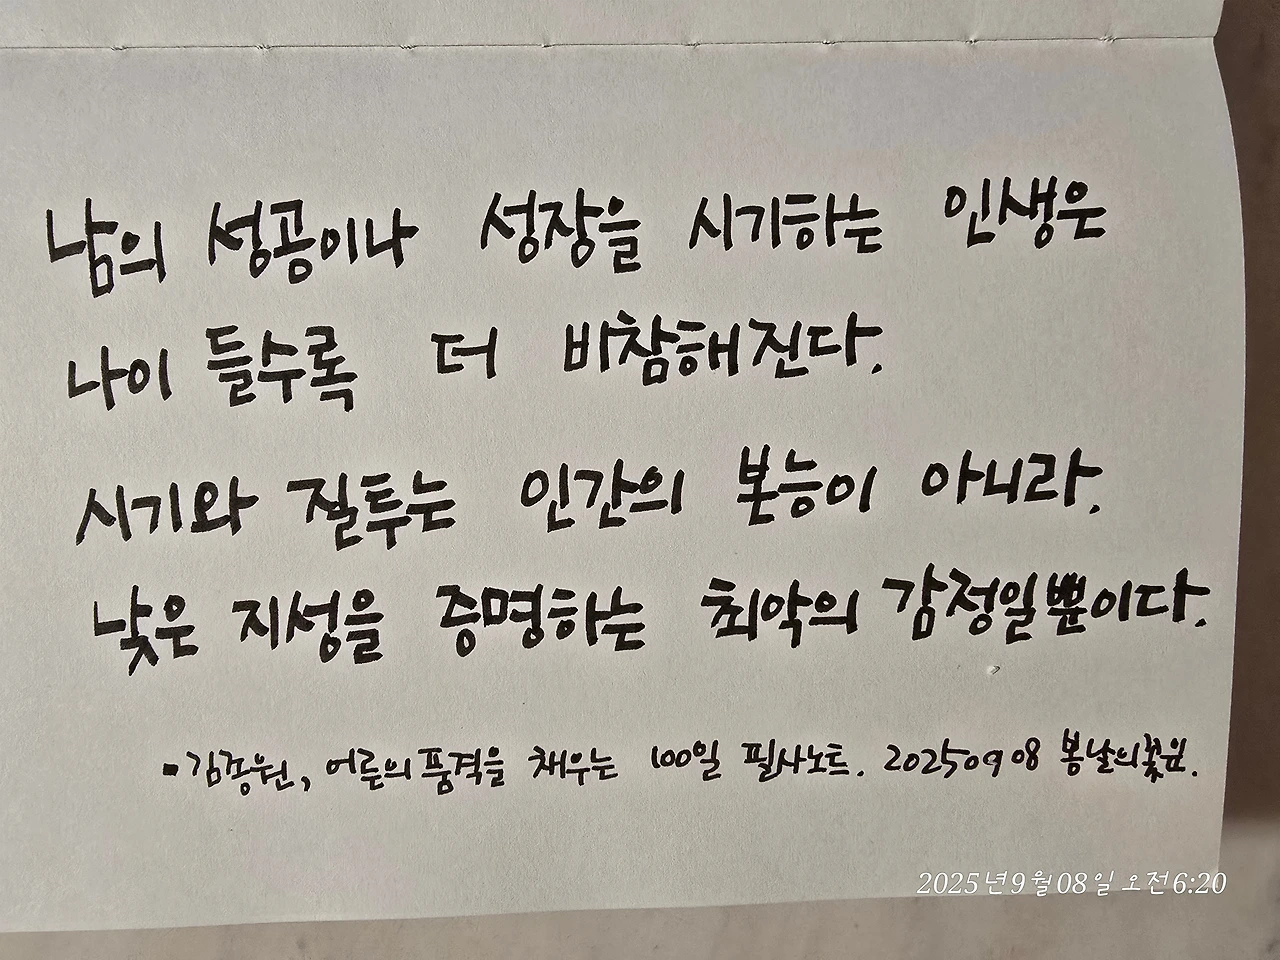 남의 성공이나 성장을 시기하는 인생은
나이 들수록 더 비참해진다.
시기와 질투는 인간의 본능이 아니라.
낮은 지성을 증명하는 최악의 감정일뿐이다.
▪김종원, 어른의 품격을 채우는 100일 필사노트. 20250908 봄날의꽃잎.
2025년9월08일 오전6:20